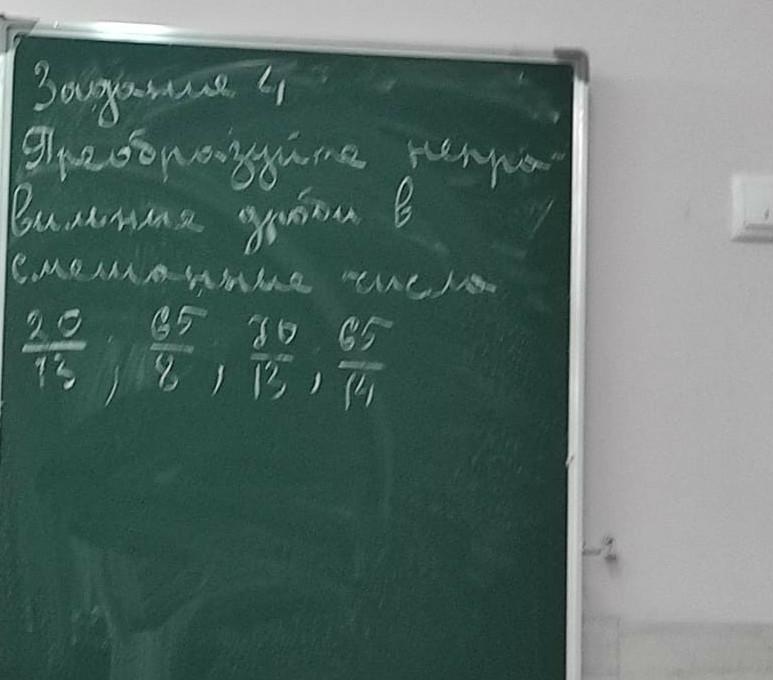 Задание 4
Преобразуйте непра-
вильные дроби в
смешанные числа
20/13; 65/8, 70/13, 65/14